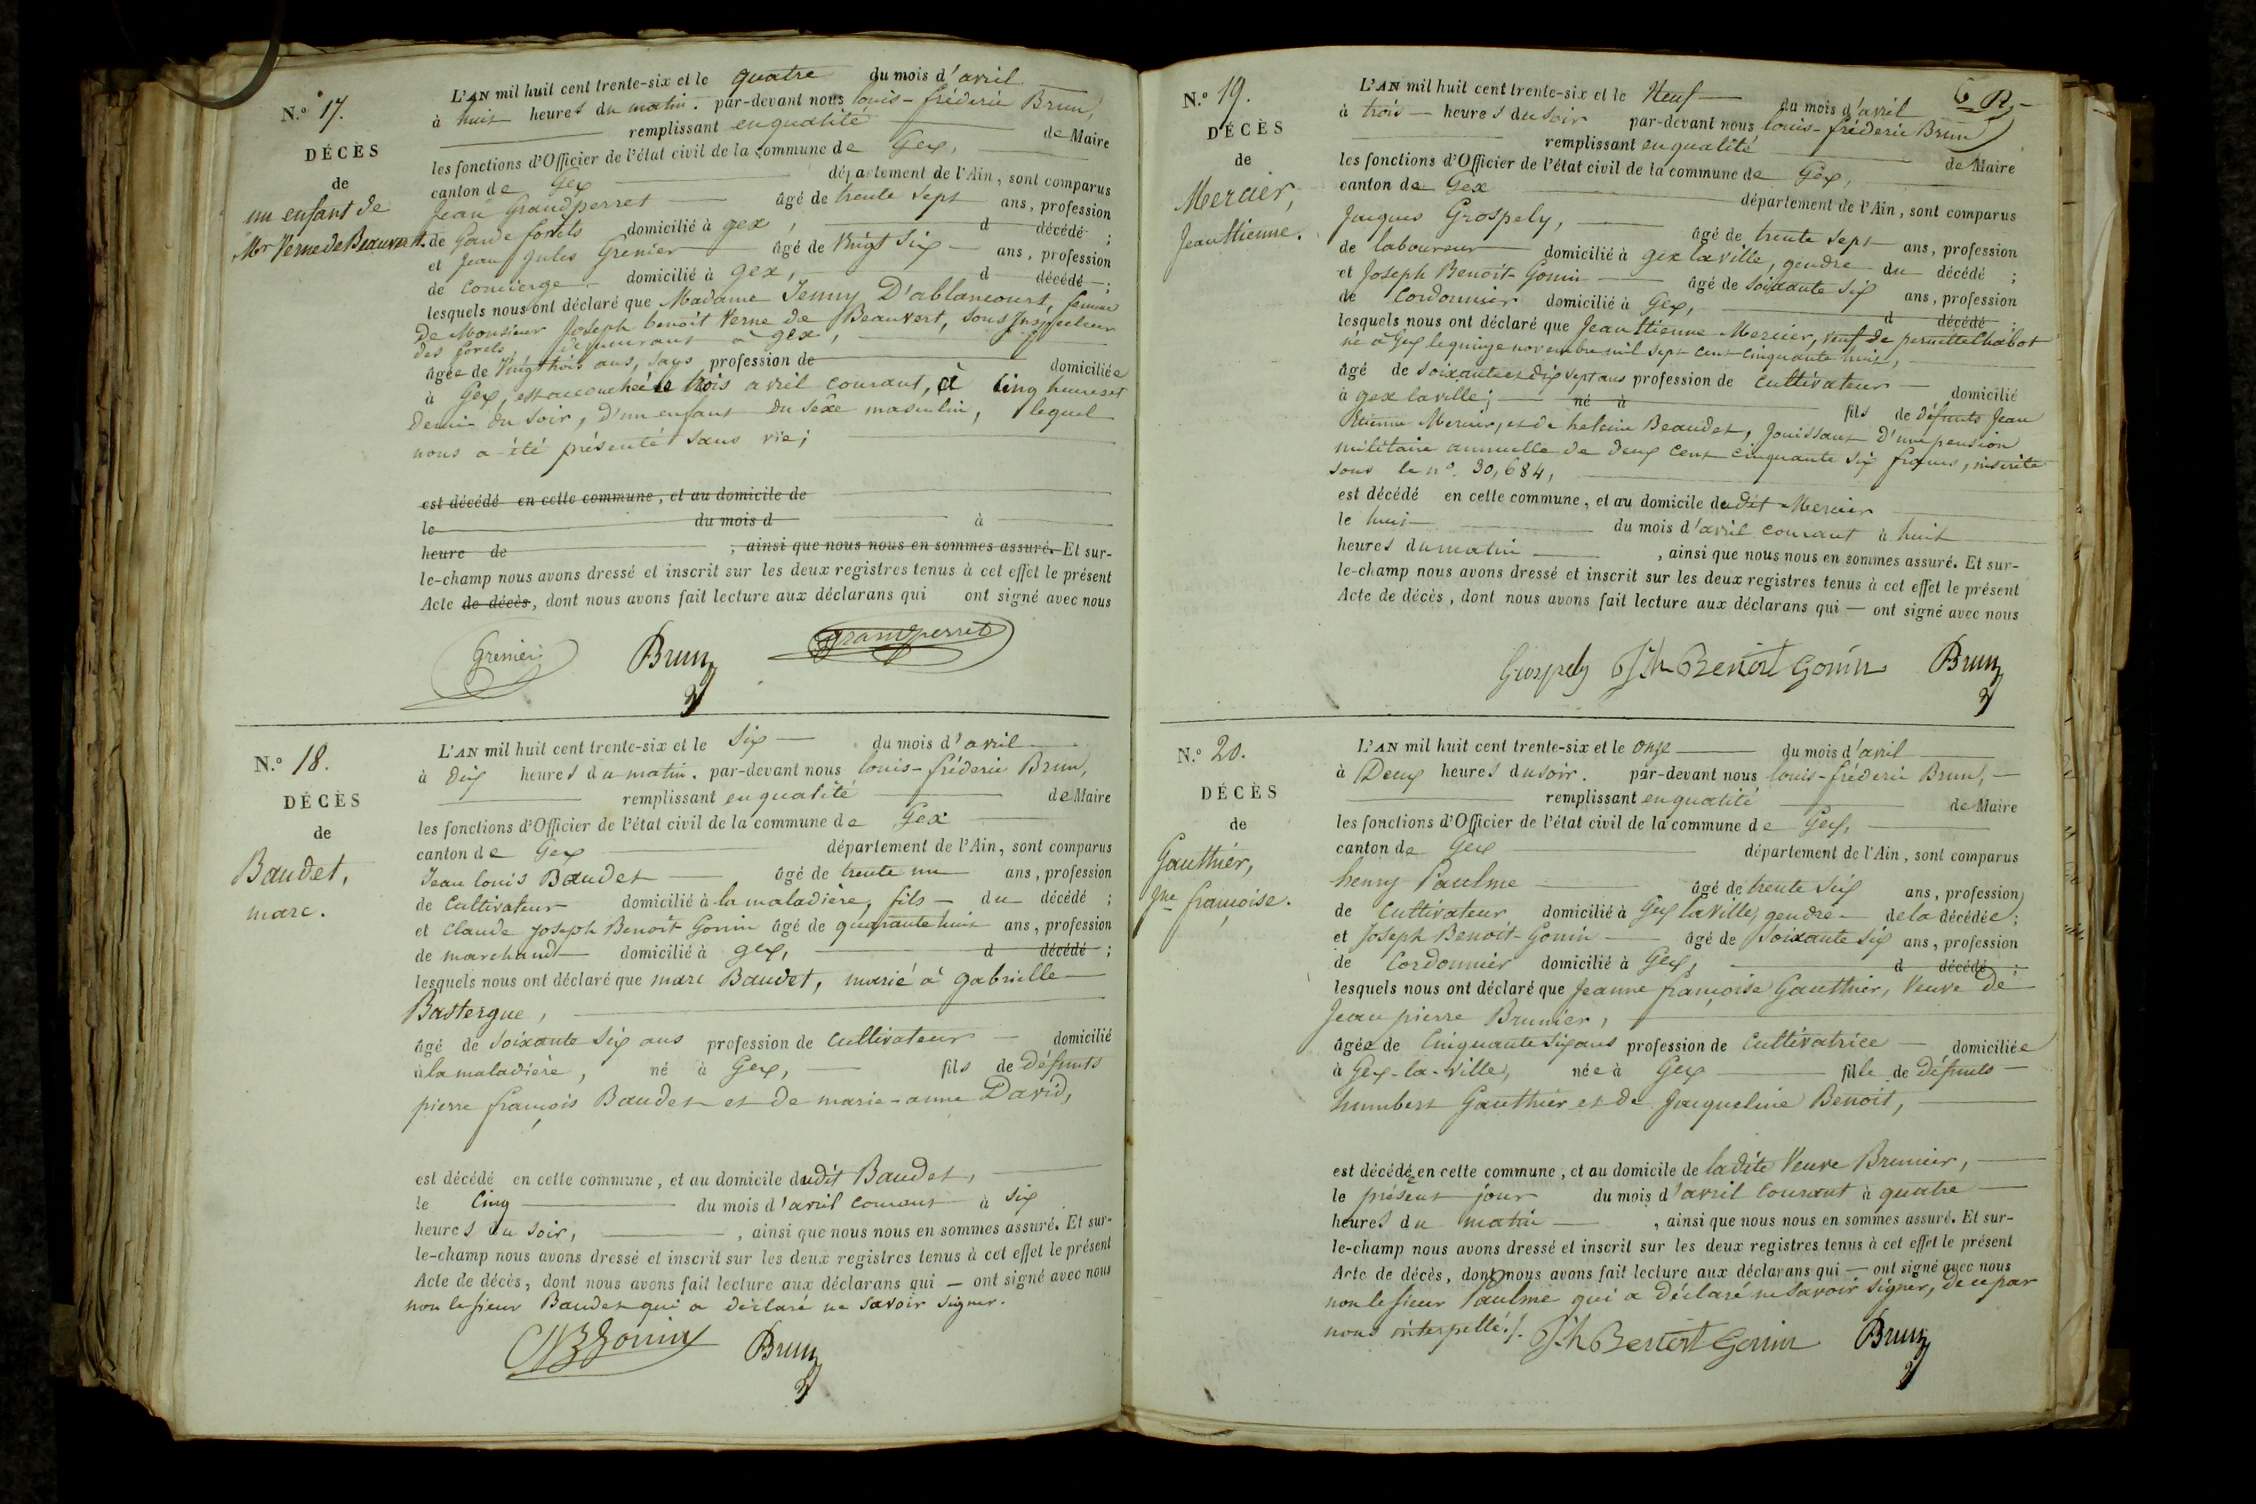 N.° 17.
DÉCÈS
de
un enfant de
Mr Verne de Beauvert.
L'AN mil huit cent trente-six et le quatre du mois d'avril
à huit heures du matin. par-devant nous louis-fréderic Brun,
remplissant en qualité de Maire
les fonctions d'Officier de l'état civil de la commune de Gex,
canton de Gex département de l'Ain, sont comparus
Jean Grandperret âgé de trente sept ans, profession
de Garde forets domicilié à gex, d décédé ;
et Jean Jules Grenier âgé de vingt six ans, profession
de concierge domicilié à gex, d décédé ;
lesquels nous ont déclaré que Madame Jenny D'ablancourt, femme
De Monsieur Joseph benoit Verne de Beauvert, sous Inspecteur
des forets demeurant à gex,
âgée de vingt trois ans, sans profession de domiciliée
à Gex, est accouchée le trois avril courant, à cinq heures et
demie du soir, d'un enfant du sexe masculin, lequel
nous a été présenté sans vie;
est décédé en cette commune, et au domicile de
le du mois d à
heure de , ainsi que nous nous en sommes assuré. Et sur-
le-champ nous avons dressé et inscrit sur les deux registres tenus à cet effet le présent
Acte de décès, dont nous avons fait lecture aux déclarans qui ont signé avec nous
Grenier Brun grandperret
N.° 18.
DÉCÈS
de
Baudet,
marc.
L'AN mil huit cent trente-six et le Six du mois d'avril
à Dix heures du matin. par-devant nous louis-fréderic Brun,
remplissant en qualité de Maire
les fonctions d'Officier de l'état civil de la commune de Gex
canton de Gex département de l'Ain, sont comparus
Jean louis Baudet âgé de trente un ans, profession
de Cultivateur domicilié à la maladière, fils du décédé ;
et Claude joseph Benoit Gonin âgé de quarante huit ans, profession
de marchand domicilié à gex, d décédé ;
lesquels nous ont déclaré que marc Baudet, marié à gabrielle
Bastergue,
âgé de soixante six ans profession de cultivateur domicilié
à la maladière, né à Gex, fils de défunts
pierre françois Baudet et de marie-anne David,
est décédé en cette commune, et au domicile dudit Baudet,
le Cinq du mois d'avril courant à six
heures du soir, , ainsi que nous nous en sommes assuré. Et sur-
le-champ nous avons dressé et inscrit sur les deux registres tenus à cet effet le présent
Acte de décès, dont nous avons fait lecture aux déclarans qui ont signé avec nous
non le sieur Baudet qui a déclaré ne savoir signer.
Gonin Brun
N.° 19.
DÉCÈS
de
Mercier,
Jean Etienne.
6 R
L'AN mil huit cent trente-six et le Neuf du mois d'avril
à trois heures du soir par-devant nous louis-fréderic Brun
remplissant en qualité de Maire
les fonctions d'Officier de l'état civil de la commune de Gex,
canton de Gex département de l'Ain, sont comparus
Jacques Grospely, âgé de trente sept ans, profession
de laboureur domicilié à gex la ville, gendre du décédé ;
et Joseph Benoit-Gonin âgé de soixante six ans, profession
de Cordonnier domicilié à Gex, d décédé ;
lesquels nous ont déclaré que Jean Etienne Mercier, veuf de pernette Chabot
né à Gex le quinze novembre mil sept cent cinquante huit,
âgé de soixante et dix sept ans profession de cultivateur domicilié
à gex la ville; né à fils de défunts Jean
Etienne Mercier, et de heleine Beaudet, Jouissant d'une pension
militaire annuelle de deux cent cinquante six francs, inscrite
sous le n°. 30,684,
est décédé en cette commune, et au domicile dudit Mercier
le huit du mois d'avril courant à huit
heures du matin , ainsi que nous nous en sommes assuré. Et sur-
le-champ nous avons dressé et inscrit sur les deux registres tenus à cet effet le présent
Acte de décès, dont nous avons fait lecture aux déclarans qui ont signé avec nous
Grospely Jh Benoit Gonin Brun
N.° 20.
DÉCÈS
de
Gauthier,
Jne françoise.
L'AN mil huit cent trente-six et le onze du mois d'avril
à Deux heures du soir. par-devant nous louis-fréderic Brun,
remplissant en qualité de Maire
les fonctions d'Officier de l'état civil de la commune de Gex,
canton de Gex département de l'Ain, sont comparus
henry Paulme âgé de trente six ans, profession
de cultivateur domicilié à Gex la ville, gendre de la décédée ;
et Joseph Benoit-Gonin âgé de soixante six ans, profession
de Cordonnier domicilié à Gex, d décédé ;
lesquels nous ont déclaré que Jeanne françoise Gauthier, Veuve de
Jean pierre Brunier,
âgée de Cinquante six ans profession de Cultivatrice domiciliée
à Gex-la-ville, née à Gex fille de défunts
humbert Gauthier et de Jacqueline Benoit,
est décédée en cette commune, et au domicile de ladite Veuve Brunier,
le présent jour du mois d'avril courant à quatre
heures du matin , ainsi que nous nous en sommes assuré. Et sur-
le-champ nous avons dressé et inscrit sur les deux registres tenus à cet effet le présent
Acte de décès, dont nous avons fait lecture aux déclarans qui ont signé avec nous
non le sieur Paulme qui a déclaré ne savoir signer, de ce par
nous interpellé./.
Jh Benoit Gonin Brun